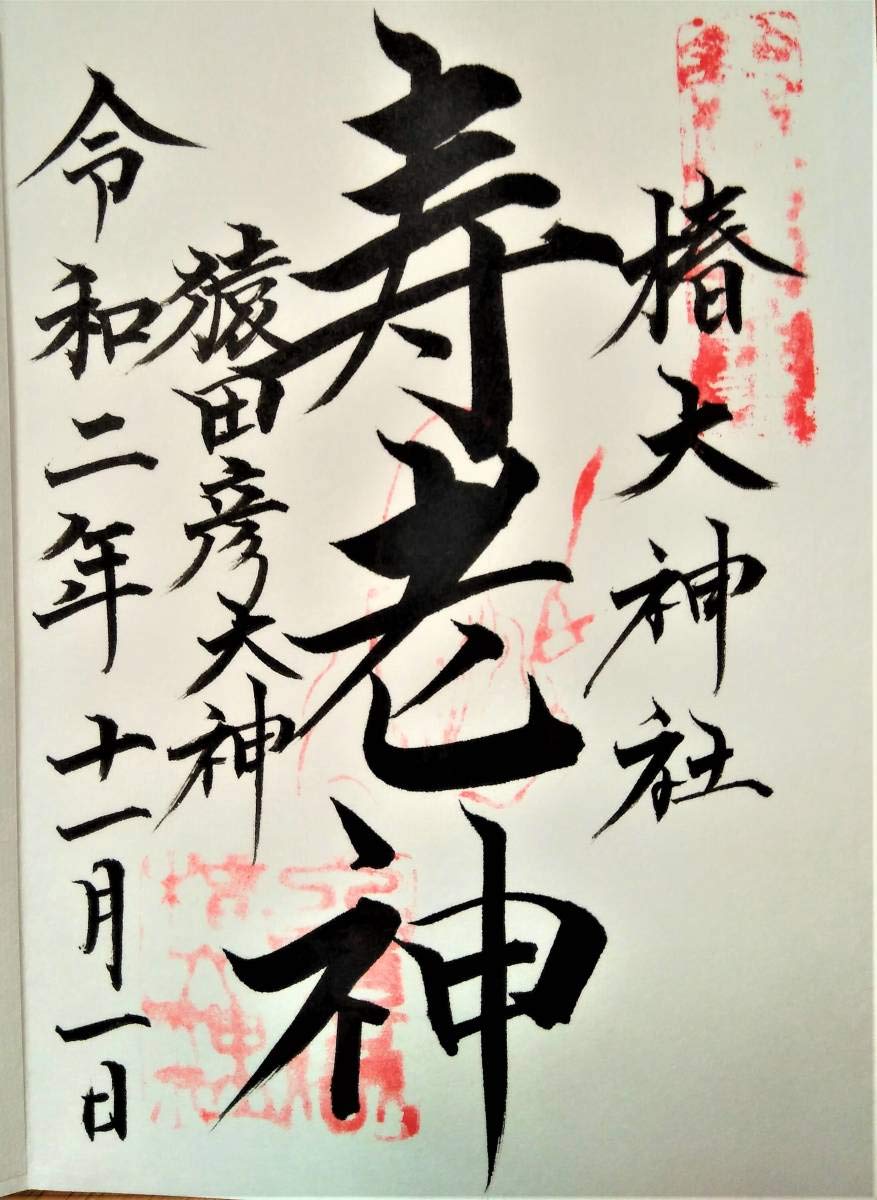 椿大神社
寿老神
猿田彦大神
令和二年十一月一日